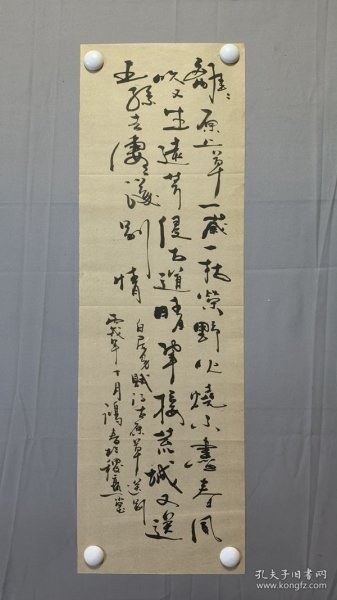 離々原上草一歲一枯榮野火燒不盡春風
吹又生遠芳侵古道晴翠接荒城又送
王孫去萋々滿別情
白居易賦得古原草送別
丙戌年十月鴻
孔夫子旧书网